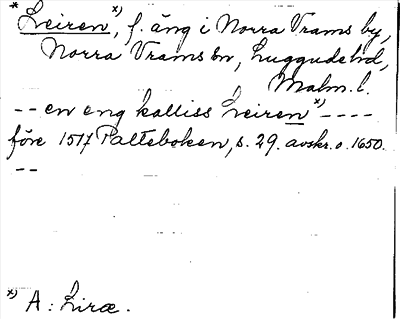 * Leiren x), f. äng i Norra Vrams by,
Norra Vrams sn, Luggude hd,
Malm. l.
-- en eng kalliss Leiren x) ----
före 1517 Palteboken, s. 29. avskr. o. 1650.
--
x) A: Liræ.